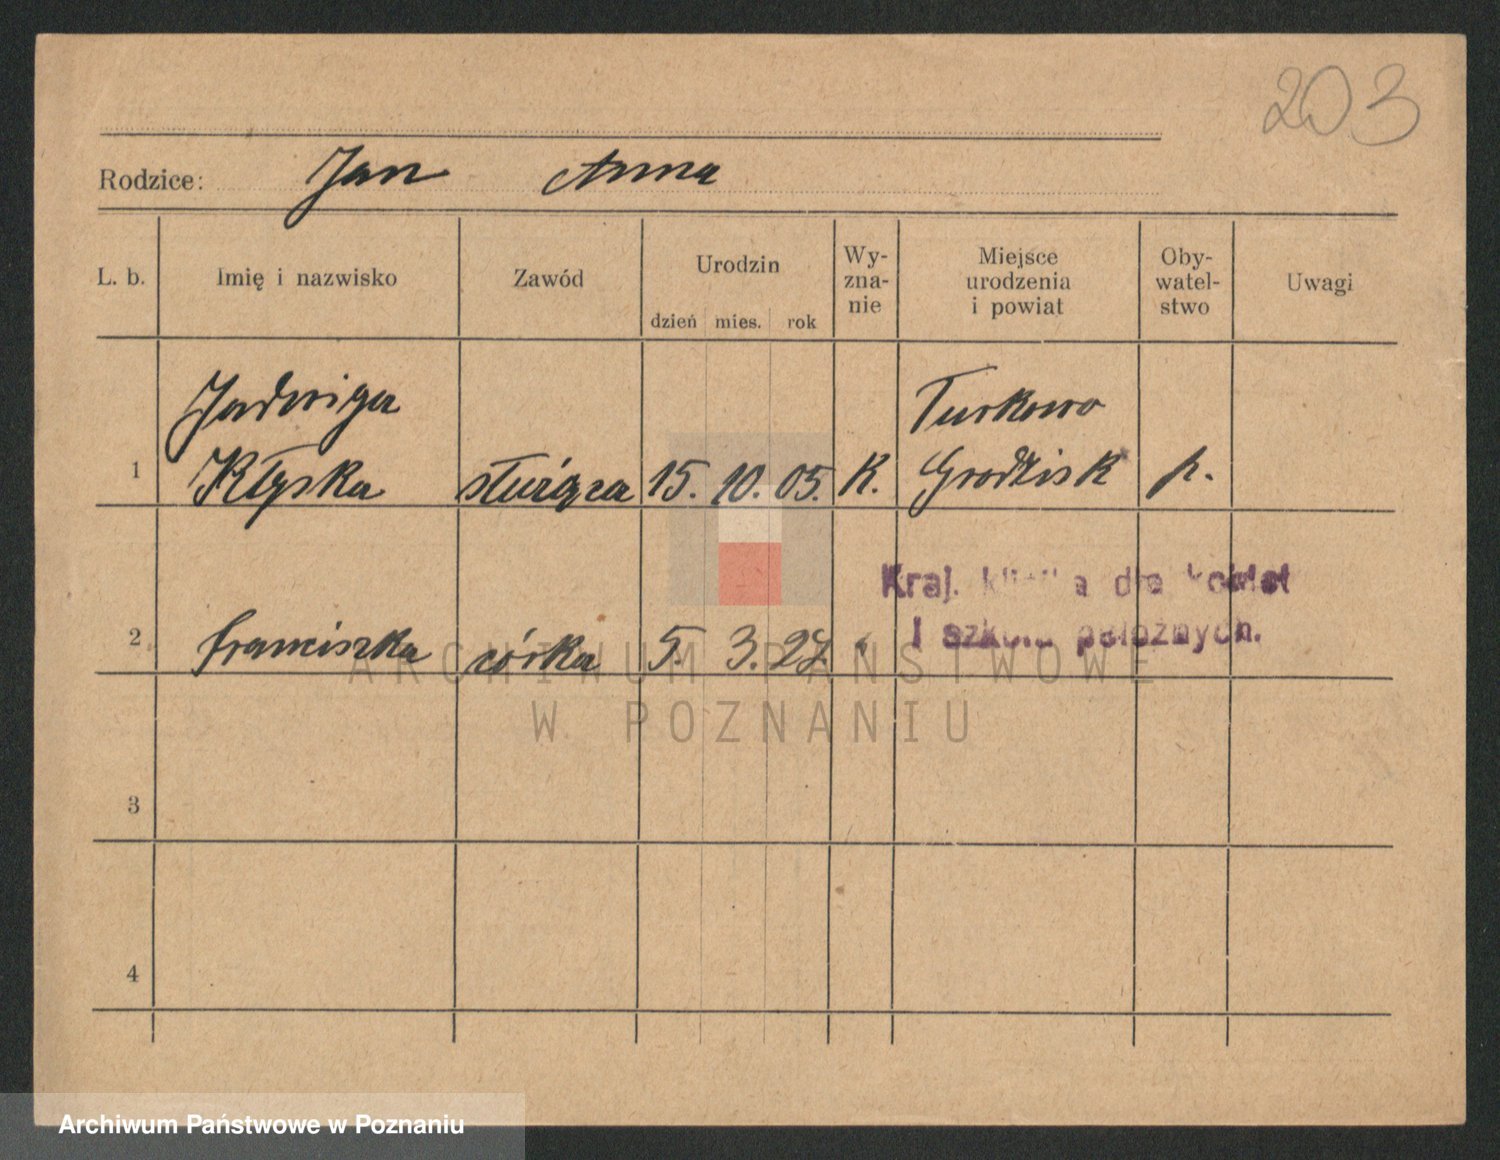 203
Rodzice: Jan Anna
L. b. Imię i nazwisko Zawód Urodzin dzień mies. rok Wy-zna-nie Miejsce urodzenia i powiat Oby-watel-stwo Uwagi
Jadwiga Turkowo
1 Kłyska służąca 15. 10. 05. K. Grodzisk p.
Kraj. klinika dla kobiet
2 Franciszka córka 5. 3. 27. "
i szkoła położnych.
ARCHIWUM PAŃSTWOWE
W POZNANIU
3
4
Archiwum Państwowe w Poznaniu